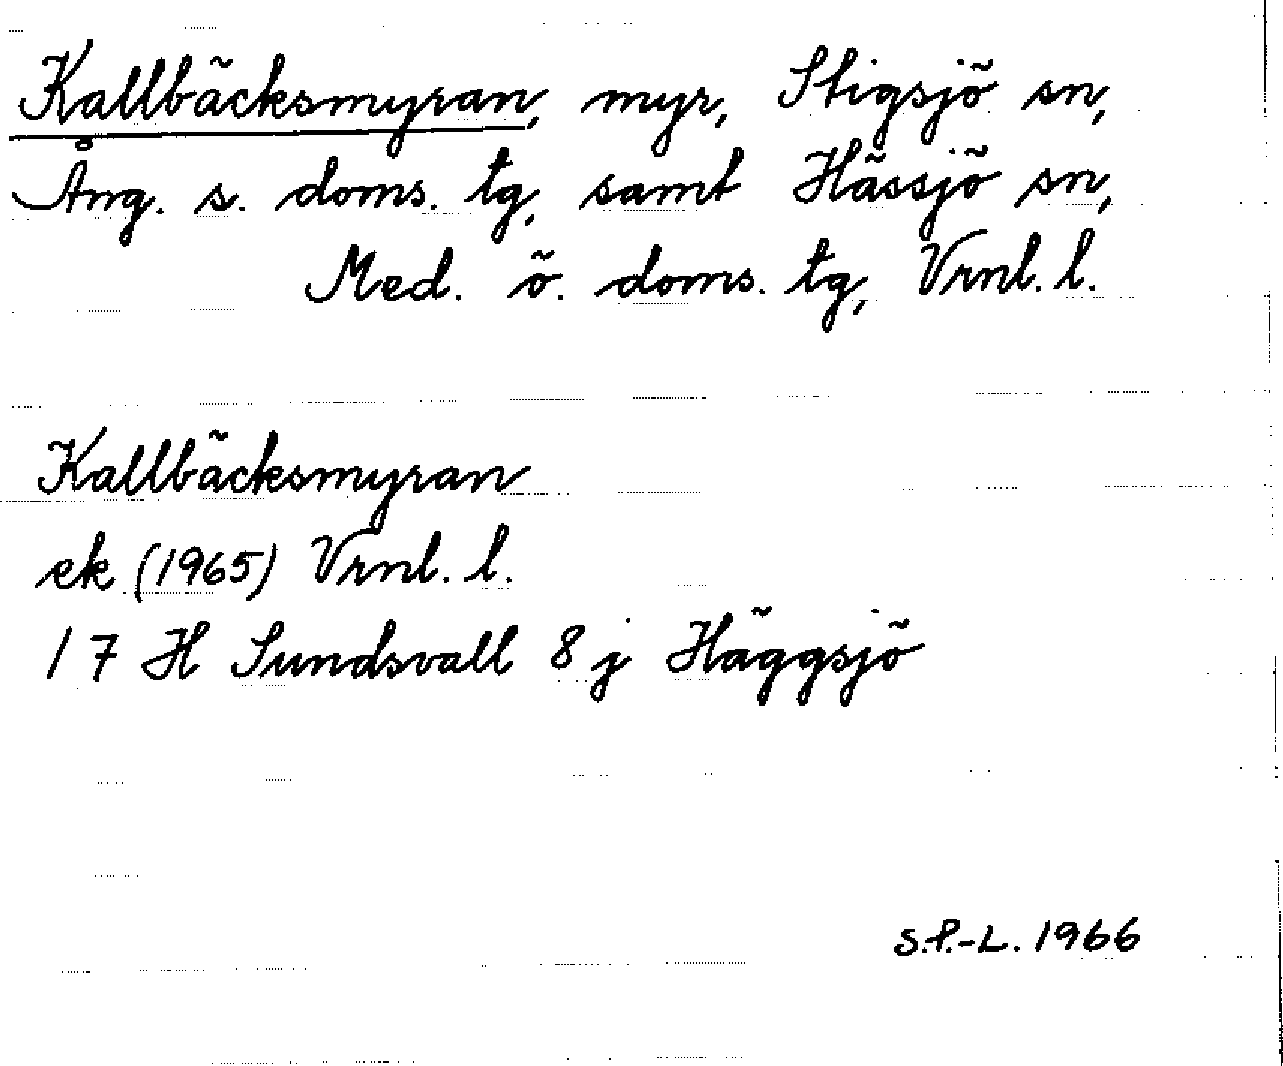 Kallbäcksmyran, myr, Stigsjö sn,
Ång. s. doms. tg, samt Hässjö sn,
Med. ö. doms. tg, Vrnl. l.
Kallbäcksmyran
ek (1965) Vrnl. l.
17 H Sundsvall 8 j Häggsjö
S.P.-L. 1966